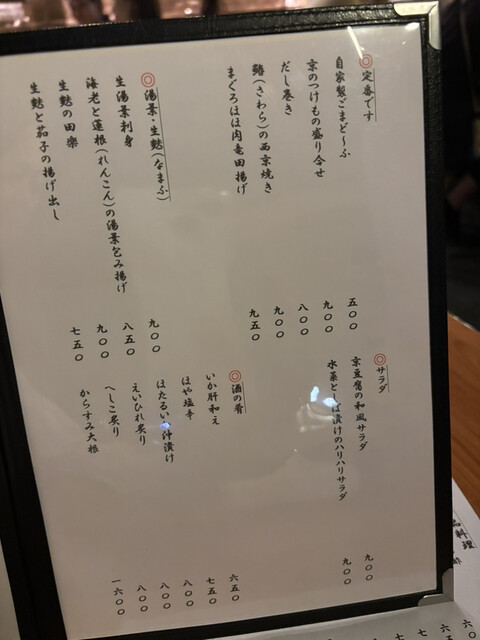 ◎定番です
自家製ごまど〜ふ 五〇〇
京のつけもの盛り合せ 九〇〇
だし巻き 八〇〇
鰆(さわら)の西京焼き 九〇〇
まぐろほほ肉竜田揚げ 九五〇
◎湯葉・生麩(なまふ)
生湯葉刺身 九〇〇
海老と蓮根(れんこん)の湯葉包み揚げ 八五〇
生麩の田楽 九〇〇
生麩と茄子の揚げ出し 七五〇
◎サラダ
京豆腐の和風サラダ 九〇〇
水菜としば漬けのハリハリサラダ 九〇〇
◎酒の肴
いか肝和え 六五〇
ほや塩辛 七五〇
ほたるいか沖漬け 八〇〇
えいひれ炙り 八〇〇
へしこ炙り 八〇〇
からすみ大根 一六〇〇
品料理